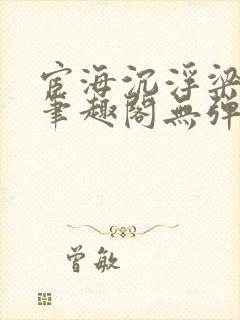 宦海沉浮梁
笔趣阁無弹
曾敏